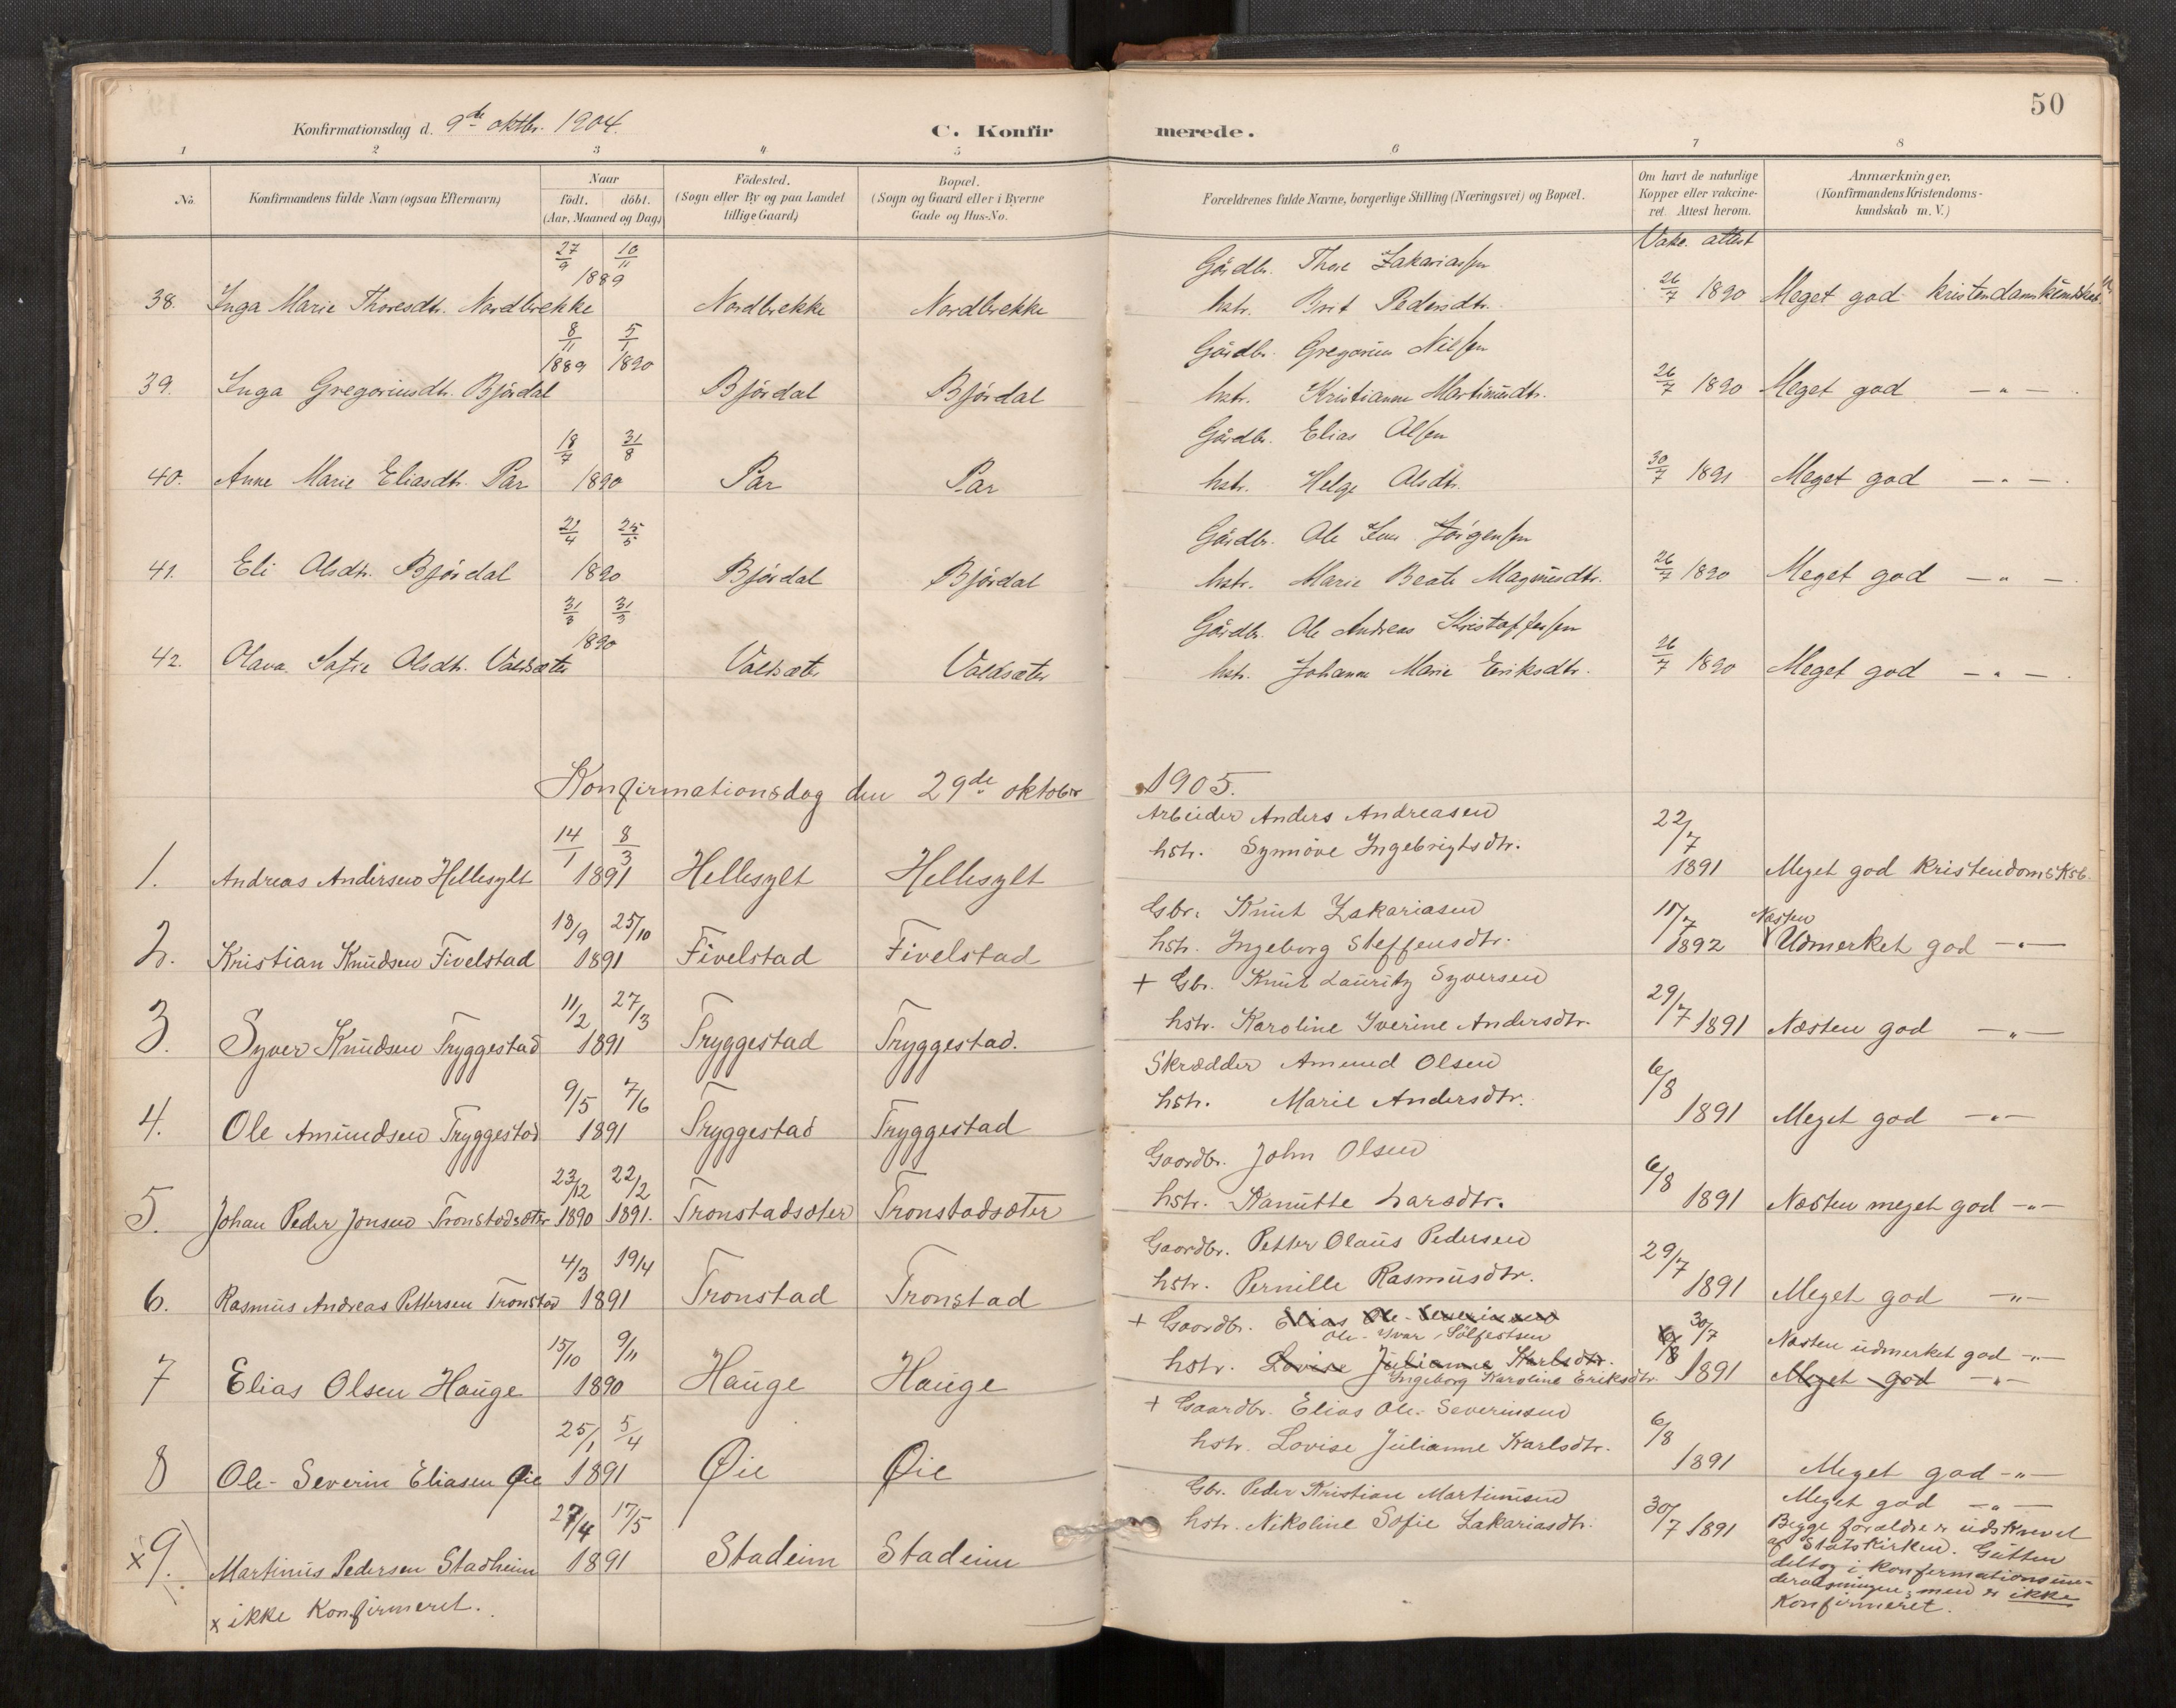 50
Konfirmationsdag d. 9de oktbr. 1904.
C. Konfirmerede.
1 2 3 4 5 6 7 8
No.
Konfirmandens fulde Navn (ogsaa Efternavn)
Naar
födt. döbt.
(Aar, Maaned og Dag)
Födested.
(Sogn eller By og paa Landet
tillige Gaard)
Bopæl.
(Sogn og Gaard eller i Byerne
Gade og Hus-No.
Forældrenes fulde Navne, borgerlige Stilling (Næringsvei) og Bopæl.
Om havt de naturlige
Kopper eller vakcine-
ret. Attest herom.
Anmærkninger,
(Konfirmandens Kristendoms-
kundskab m. V.)
Vakc. attest
27/9 10/11 Gårdbr. Thore Zakariassen
1889
38. Inga Marie Thoresdtr. Nordbrekke Nordbrekke Nordbrekke hstr. Brit Pedersdtr. 26/7 1890 Meget god kristendomskundskab
8/11 5/1 Gårdbr. Gregorius Nilsen
1889 1890
39. Inga Gregoriusdtr. Björdal Björdal Björdal hstr. Kristianne Martinusdtr. 26/7 1890 Meget god —"—
18/7 31/8 Gårdbr. Elias Olsen
40. Anne Marie Eliasdtr. Par 1890 Par Par hstr. Helge Olsdtr. 30/7 1891 Meget god —"—
21/4 25/5 Gårdbr. Ole Jörgensen
41. Eli Olsdtr. Björdal 1890 Björdal Björdal hstr. Marie Beate Magnusdtr. 26/7 1890 Meget god —"—
31/3 Gårdbr. Ole Andreas Kristoffersen
1890
42. Olava Sofie Olsdtr. Valdsæter Valdsæter Valdsæter hstr. Johanne Marie Eriksdtr. 26/7 1890 Meget god —"—
Konfirmationsdag den 29de oktober 1905.
14/1 8/3 Arbeider Anders Andreasen
1. Andreas Andersen Hellesylt 1891 Hellesylt Hellesylt hstr. Synnöve Ingebrigtsdtr. 22/7 1891 Meget god kristendomsksb.
18/9 25/10 Gbr. Knut Zakariasen
2. Kristian Knudsen Fivelstad 1891 Fivelstad Fivelstad hstr. Ingeborg Steffensdtr. 15/7 1892 Næsten Udmerket god —"—
11/2 27/3 + Gbr. Knut Lauritz Syversen
3. Syver Knudsen Tryggestad 1891 Tryggestad Tryggestad. hstr. Karoline Iverine Andersdtr. 29/7 1891 Næsten god —"—
9/5 7/6 Skrædder Amund Olsen
4. Ole Amundsen Tryggestad 1891 Tryggestad Tryggestad hstr. Marie Andersdtr. 6/8 1891 Meget god —"—
23/12 22/2 Gaardbr. John Olsen
5. Johan Peder Jonsen Tronstadsæter 1890 1891. Tronstadsæter Tronstadsæter hstr. Kanutte Larsdtr. 6/8 1891 Næsten meget god —"—
4/3 19/4 Gaardbr. Petter Olaus Pedersen
6. Rasmus Andreas Pettersen Tronstad 1891 Tronstad Tronstad hstr. Pernille Rasmusdtr. 29/7 1891 Meget god —"—
15/10 9/11 + Gaardbr. Elias Ole-Severinsen
Ole-Ivar Sölfestsen 30/7 Næsten udmerket god —"—
7 Elias Olsen Hauge 1890 Hauge Hauge hstr. Lovise Julianne Karlsdtr. 6/8 1891 Meget god —"—
Ingeborg Karoline Eriksdtr.
25/1 5/4 + Gaardbr. Elias Ole-Severinsen
8 Ole-Severin Eliasen Øie 1891 Øie Øie hstr. Lovise Julianne Karlsdtr. 6/8 1891 Meget god —"—
27/4 17/5 Gbr. Peder Kristian Martinusen Meget god —"—
x 9. Martinus Pedersen Stadheim 1891 Stadeim Stadeim hstr. Nikoline Sofie Zakariasdtr. 30/7 1891 Begge forældre er udskrevet
af Statskirken. Gutten
deltog i konfirmationsun-
dervisningen; men er ikke
konfirmeret.
x ikke Konfirmeret.